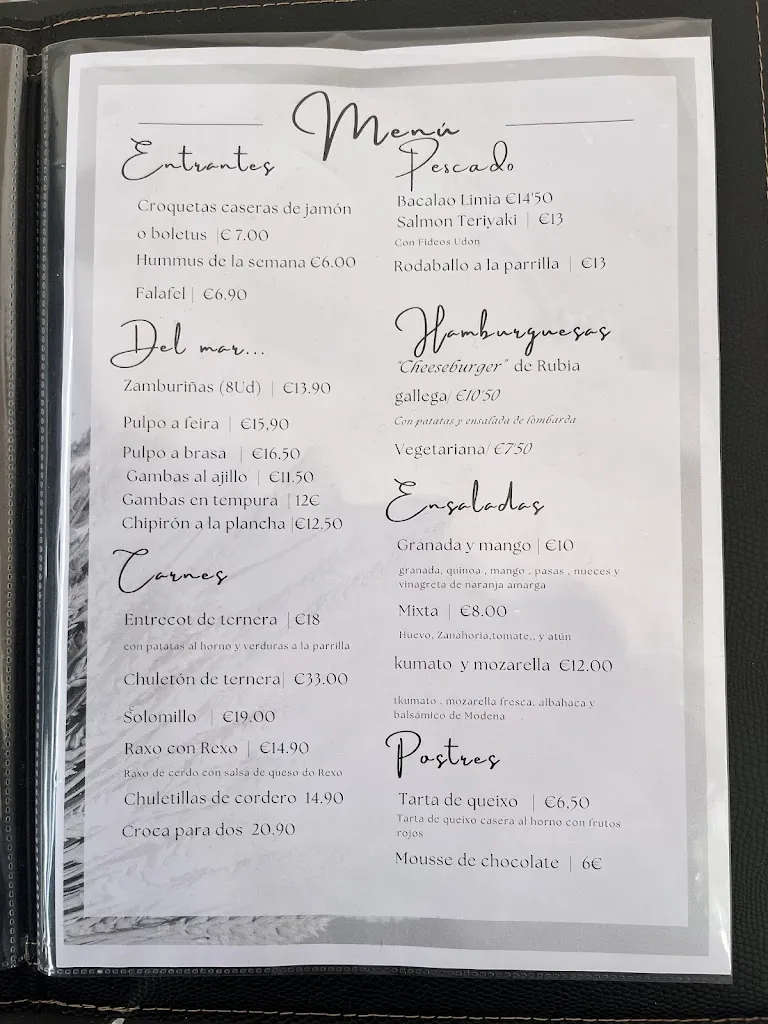 Menú
Entrantes
Croquetas caseras de jamón
o boletus |€ 7.00
Hummus de la semana €6.00
Falafel | €6.90
Del mar...
Zamburiñas (8Ud) | €13.90
Pulpo a feira | €15,90
Pulpo a brasa | €16,50
Gambas al ajillo | €11.50
Gambas en tempura | 12€
Chipirón a la plancha |€12.50
Carnes
Entrecot de ternera | €18
con patatas al horno y verduras a la parrilla
Chuletón de ternera| €33.00
Solomillo | €19.00
Raxo con Rexo | €14.90
Raxo de cerdo con salsa de queso do Rexo
Chuletillas de cordero 14.90
Croca para dos 20.90
Pescado
Bacalao Limia €14'50
Salmon Teriyaki | €13
Con Fideos Udon
Rodaballo a la parrilla | €13
Hamburguesas
"Cheeseburger" de Rubia
gallega/ €10'50
Con patatas y ensalada de lombarda
Vegetariana/ €7'50
Ensaladas
Granada y mango | €10
granada, quinoa , mango , pasas , nueces y
vinagreta de naranja amarga
Mixta | €8.00
Huevo, Zanahoria,tomate,, y atún
kumato y mozarella €12.00
tkumato , mozarella fresca, albahaca y
balsámico de Modena
Postres
Tarta de queixo | €6,50
Tarta de queixo casera al horno con frutos
rojos
Mousse de chocolate | 6€